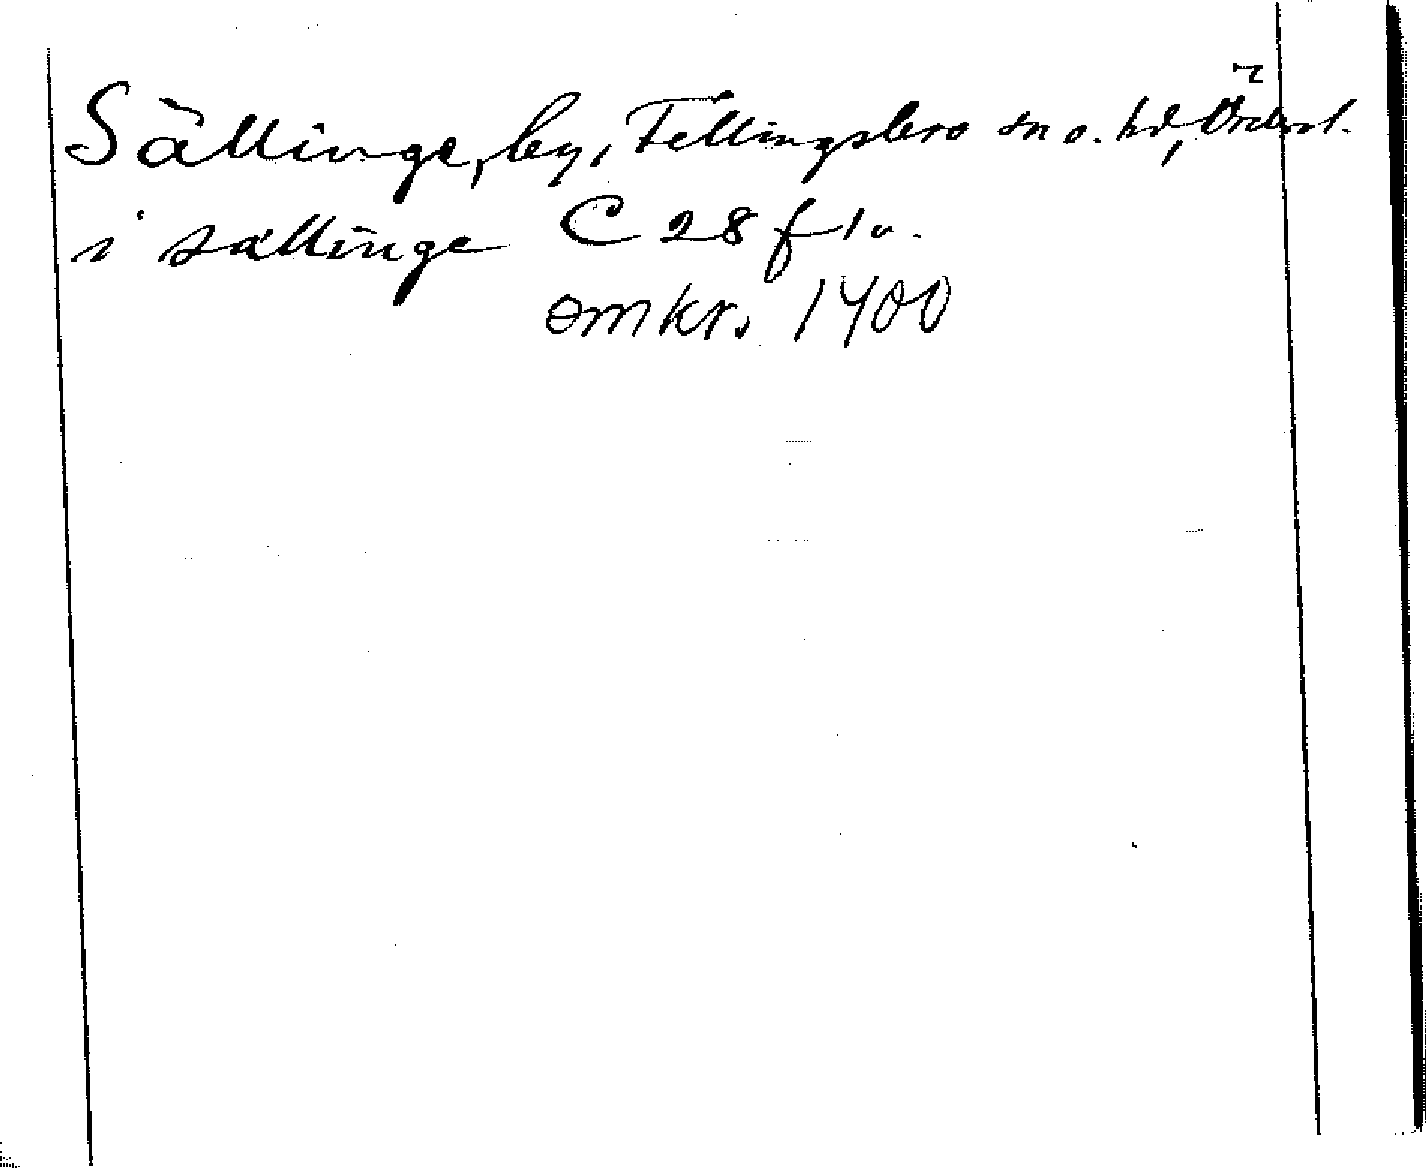 Sällinge, by, Fellingsbro sn o. hd, Örebro l.
i sællinge C 28 f 1 v.
omkr. 1400